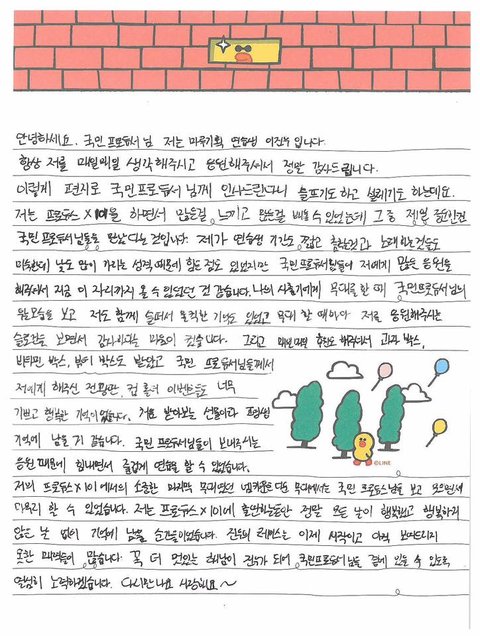 안녕하세요. 국민 프로듀서님 저는 마루기획 연습생 이진우입니다.
항상 저를 매일매일 생각해주시고 응원해주셔서 정말 감사드립니다.
이렇게 편지로 국민프로듀서님께 인사드린다니 슬프기도하고 설레기도 하는데요.
저는 프로듀스 X 101을 하면서 많은걸 느끼고 많은걸 배울 수 있었는데 그 중 제일
국민 프로듀서님들을 만났다는 것입니다. 제가 연습생 기간도 짧고 춤추는것과 노래하는것들도
미숙한데 낯도 많이 가리는 성격 때문에 힘든 점도 있었지만 국민 프로듀서님들이 저에게 많은 응원을
해주셔서 지금 이 자리까지 올 수 있었던 것 같습니다. 나의 사춘기에게 무대를 할 때 국민프로듀서님의
우는모습을 보고 저도 함께 슬퍼서 울컥한 기억도 있었고 무대 할 때마다 저를 응원해주시는
슬로건을 보면서 감사하다는 마음이 컸습니다. 그리고 매일매일 투표도 해주셔서 과자 박스,
비타민 박스, 뷰티 박스도 받았고 국민 프로듀서님들께서
저에게 해주신 전광판, 컵 홀더 이벤트들도 너무
기쁘고 행복한 기억이었습니다. 처음 받아보는 선물이라 평생
기억에 남을 거 같습니다. 국민 프로듀서님들이 보내주시는
응원 때문에 힘내면서 즐겁게 연습을 할 수 있었습니다.
©LINE
저의 프로듀스 X 101에서의 소중한 마지막 무대였던 무대에서는 국민 프로듀서님을 보고 웃으면서
마무리 할 수 있었습니다. 저는 프로듀스 X 101에 출연하는동안 정말 모든 날이 행복했고 행복하지
않은 날 없이 기억에 남을 순간들이었습니다. 진우의 레벨스는 이제 시작이고 아직 보여드리지
못한 매력들이 많습니다. 꼭 더 멋있는 진우가 되어 국민프로듀서님을 곁에 있을 수 있도록
열심히 노력하겠습니다. 다시만나요 사랑해요~